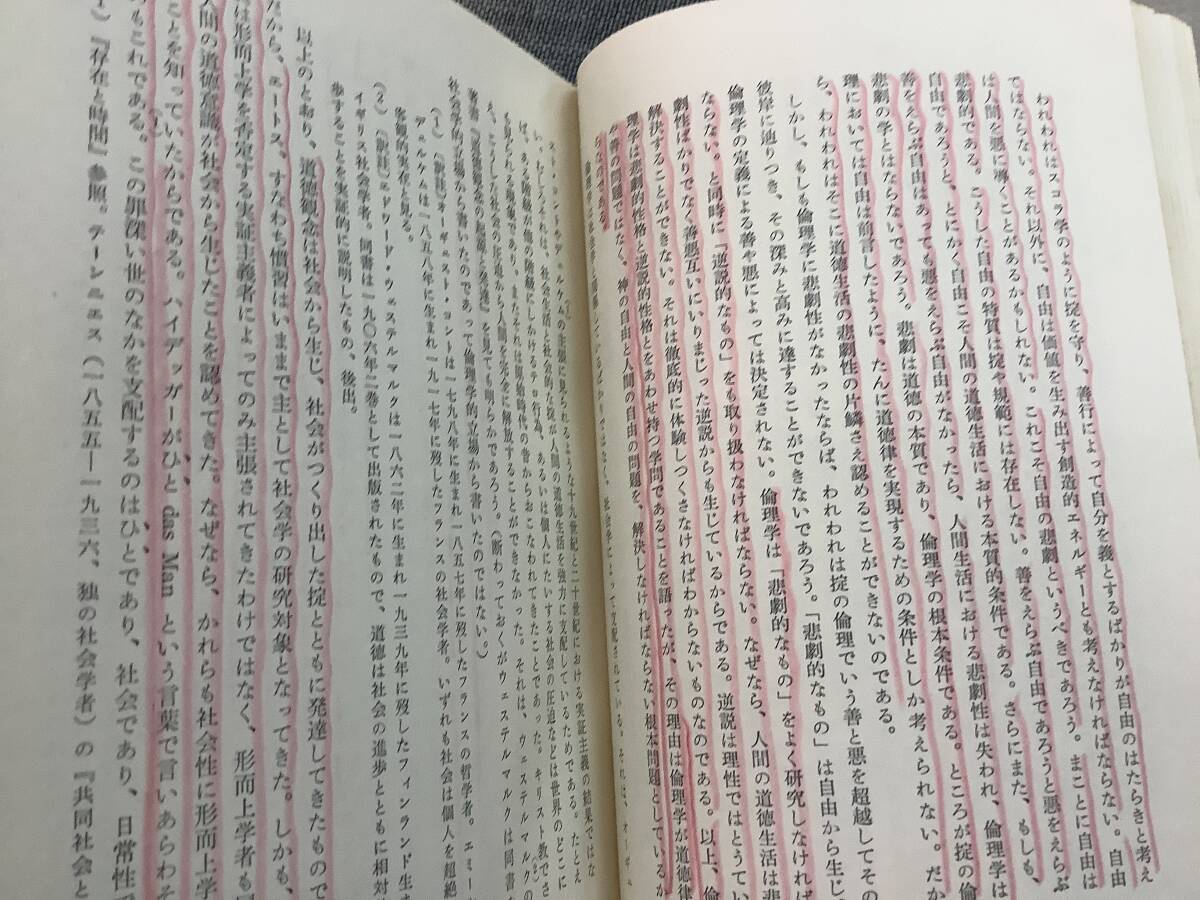 われわれはスコラ学のように掟を守り、善行によって自分を義とするばかりが自由のはたらきと考え
てはならない。それ以外に、自由は価値を生み出す創造的エネルギーとも考えなければならない。自由
は人間を悪に導くことがあるかもしれない。これこそ自由の悲劇というべきであろう。まことに自由は
悲劇的である。こうした自由の特質は掟や規範には存在しない。善をえらぶ自由であろうと悪をえらぶ
自由であろうと、とにかく自由こそ人間の道徳生活における本質的条件である。さらにまた、もしも
善をえらぶ自由はあっても悪をえらぶ自由がなかったら、人間生活における悲劇性は失われ、倫理学は
悲劇の学とはならないであろう。悲劇は道徳の本質であり、倫理学の根本条件である。ところが掟の倫
理においては自由は前言したように、たんに道徳律を実現するための条件としか考えられない。だか
ら、われわれはそこに道徳生活の悲劇性の片鱗さえ認めることができないのである。
しかし、もしも倫理学に悲劇性がなかったならば、われわれは掟の倫理でいう善と悪を超越してその
彼岸に辿りつき、その深みと高みに達することができないであろう。「悲劇的なもの」は自由から生じ
倫理学の定義による善や悪によっては決定されない。倫理学は「悲劇的なもの」をよく研究しなければ
ならない。と同時に「逆説的なもの」をも取り扱わなければならない。なぜなら、人間の道徳生活は悲
劇性ばかりでなく善悪互いにいりまじった逆説からも生じているからである。逆説は理性ではとうてい
解決することができない。それは徹底的に体験しつくさなければわからないものなのである。以上、倫
理学は悲劇的性格と逆説的性格とをあわせ持つ学問であることを語ったが、その理由は倫理学が道徳律
の問題ではなく、神の自由と人間の自由の問題を、解決しなければならない根本問題としているか
らなのである。
社会学によって支配されている。それは、
の主張に見られるような十九世紀と二十世紀における実証主義の結果ではな
い。むしろそれは、社会生活と社会的な掟が人間の道徳生活を強力に支配しているためである。たとえ
ば、ある階級が他の階級にしかけるテロ行為、あるいは個人にたいする社会の圧迫などは世界のどこに
も見られる現象であり、またそれは原始時代の昔からおこなわれてきたことであった。キリスト教でさ
え、こうした社会の圧迫から人間を完全に解放することができなかった。それは、ウェステルマルクの
著書『道徳観念の起源と発達』を見ても明らかであろう。(断わっておくがウェステルマルクは同書
社会学的立場から書いたのであって倫理学的立場から書いたのではない。)
(1) (訳註)オーギュスト・コントは一七九八年に生まれ一八五七年に歿したフランスの哲学者。エミー
デュルケムは一八五八年に生まれ一九一七年に歿したフランスの社会学者。いずれも社会は個人を超絶
客観的実在と見る。
(2) (訳註)エドワード・ウェステルマルクは一八六二年に生まれ一九三九年に歿したフィンランド生
イギリス社会学者。同書は一九〇六年二巻として出版されたもので、道徳は社会の進歩とともに相対
歩することを実証的に説明したもの、後出。
以上のとおり、道徳観念は社会から生じ、社会がつくり出した掟とともに発達してきたもので
だから、エートス、すなわち慣習はいままで主として社会学の研究対象となってきた。しかも、
は形而上学を否定する実証主義者によってのみ主張されてきたわけではなく、形而上学者も
人間の道徳意識が社会から生じたことを認めてきた。なぜなら、かれらも社会性に形而上学
ことを知っていたからである。ハイデッガーがひと das Man という言葉で言いあらわそ
もこれである。この罪深い世のなかを支配するのはひとであり、社会であり、日常性
) 『存在と時間』参照。テーンニエス(一八五五―一九三六、独の社会学者)の『共同社会と